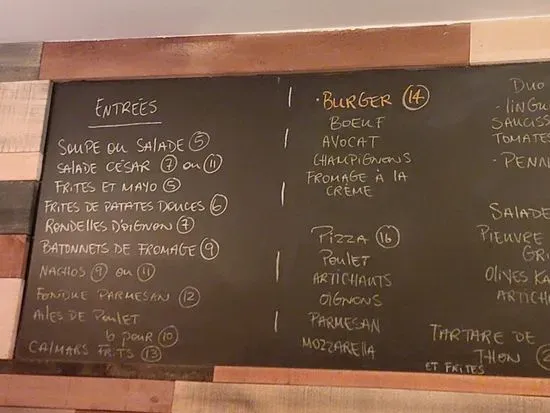 ENTRÉES
SOUPE OU SALADE 5
SALADE CÉSAR 7 OU 11
FRITES ET MAYO 5
FRITES DE PATATES DOUCES 6
RONDELLES D'OIGNON 7
BATONNETS DE FROMAGE 9
NACHOS 9 OU 11
FONDUE PARMESAN 12
AILES DE POULET
6 POUR 10
CALMARS FRITS 13
· BURGER 14
BOEUF
AVOCAT
CHAMPIGNONS
FROMAGE À LA
CRÈME
PIZZA 16
POULET
ARTICHANTS
OIGNONS
PARMESAN
MOZZARELLA
DUO
· LINGU
SAUCISS
TOMATES
· PENN
SALADE
PIEUVRE
GRI
OLIVES KA
ARTICH
TARTARE DE
THON
ET FRITES